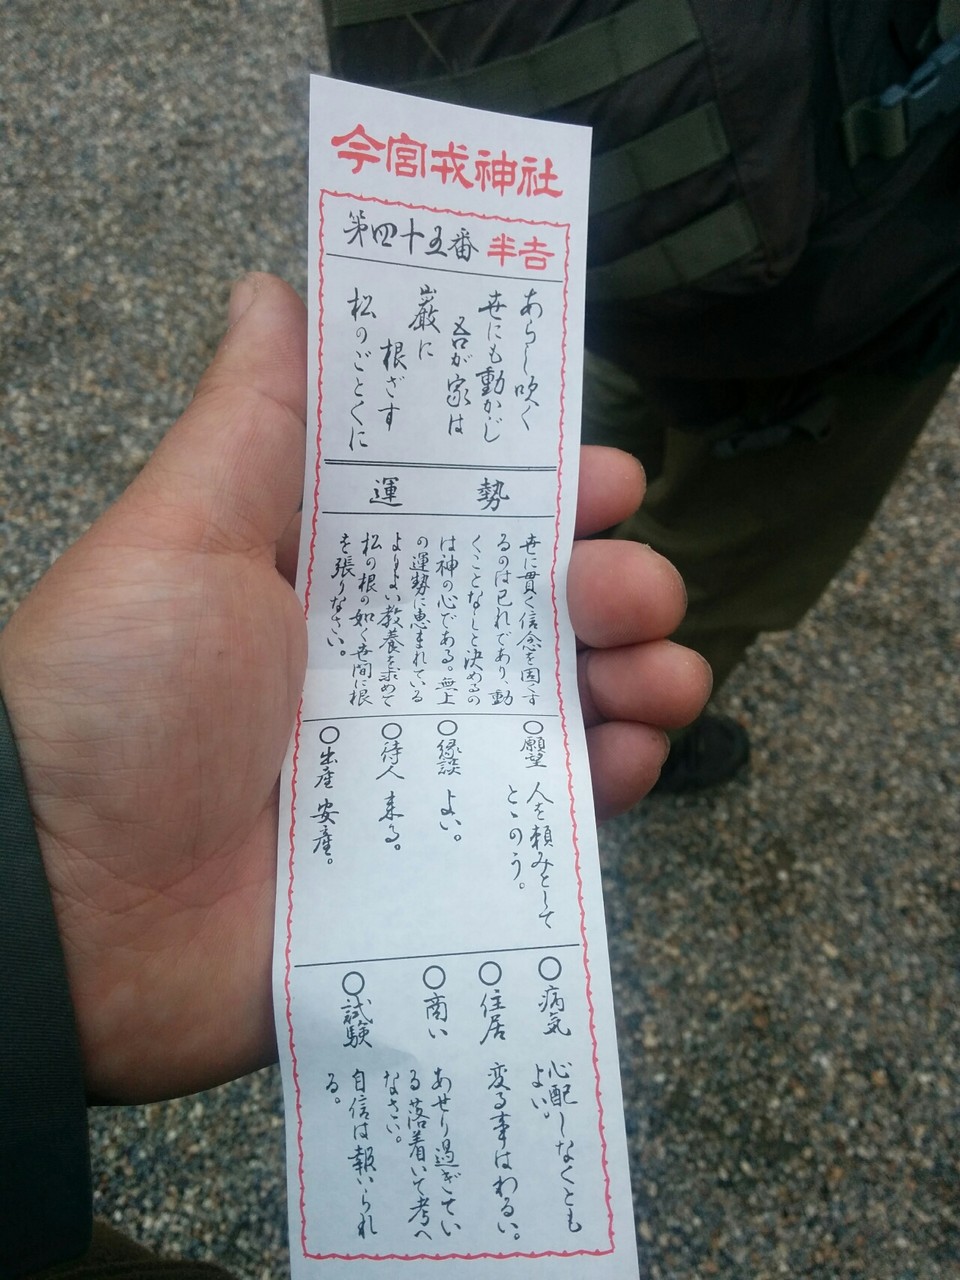 今宮戎神社
第四十五番 半吉
あらし吹く
世にも動かじ
吾が家は
巌に
根ざす
松のごとくに
運勢
世に貫く信念を固くす
るのは己れであり、動
くことなしと決めるの
は神の心である。無上
の運勢に恵まれている
よりよい教養を求めて
松の根の如く世間に根
を張りなさい。
○願望 人を頼みとして
とゝのう。
○縁談 よい。
○待人 来る。
○出産 安産。
○病気 心配しなくとも
よい。
○住居 変る事はわるい。
○商い あせり過ぎてい
る落着いて考へ
なさい。
○試験 自信は報いられ
る。